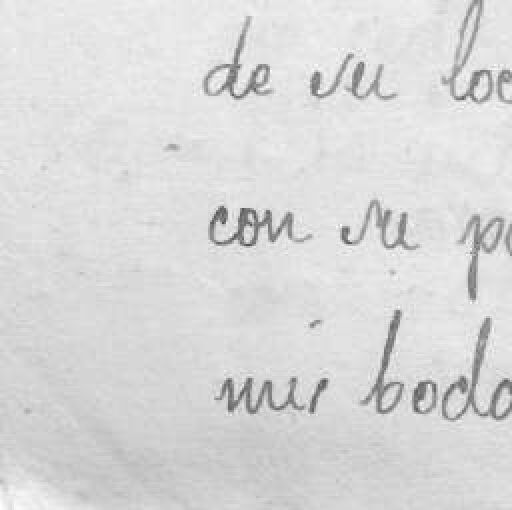 de su loc
con su pa
mis boda